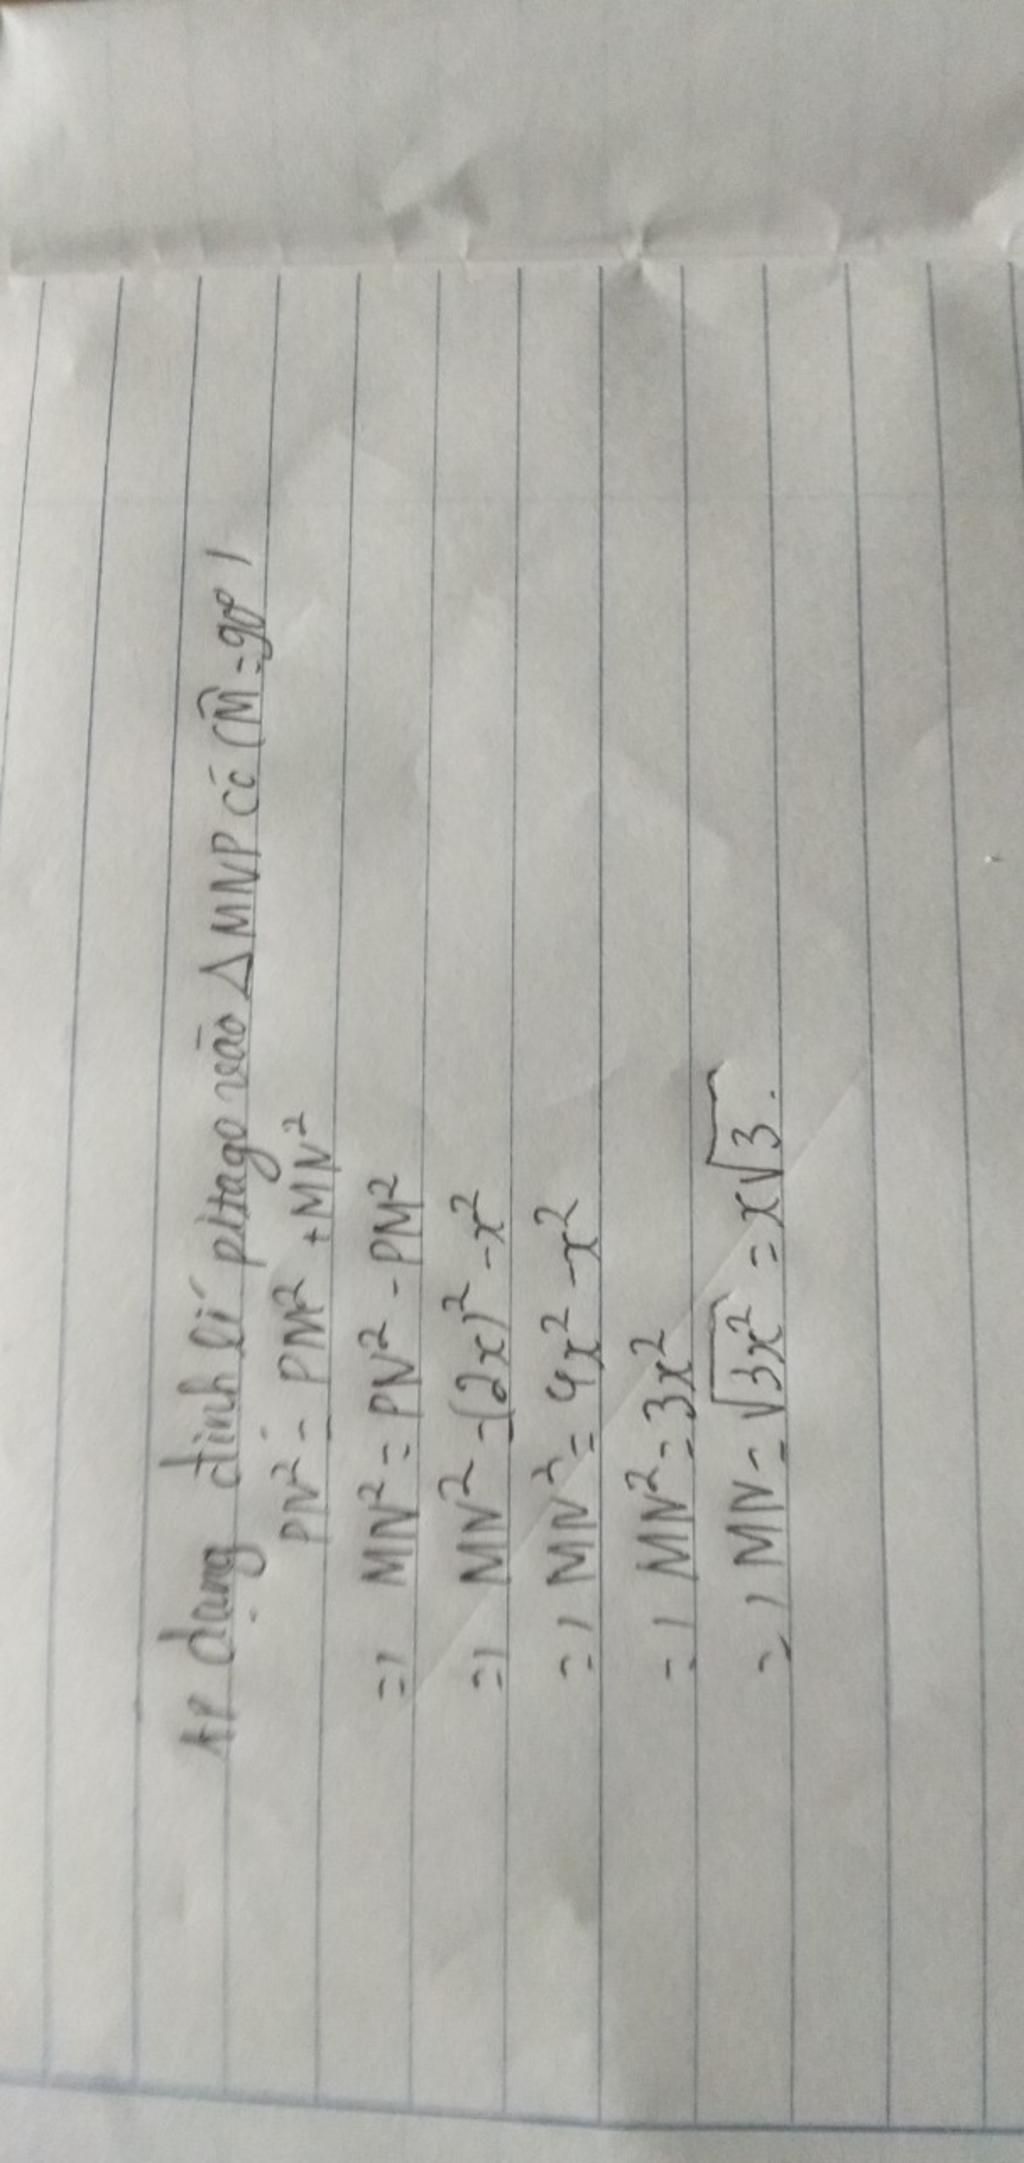 Áp dụng định lí pitago vào △MNP có (M̂=90°)
PN² = PM² + MN²
=> MN² = PN² - PM²
=> MN² = (2x)² - x²
=> MN² = 4x² - x²
=> MN² = 3x²
=> MN = √3x² = x√3.